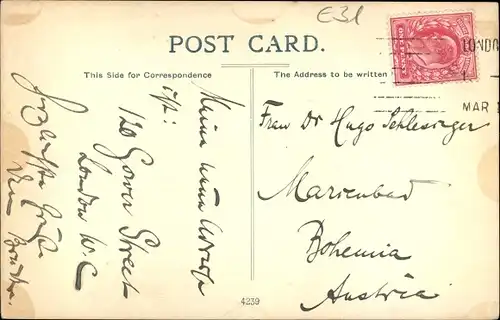 E31
POST CARD.
This Side for Correspondence
The Address to be written
LONDO
MAR
Meine neue Adresse
ist:
120 Gower Street
London W.C
Grüße
Dein Bruder.
Frau Dr Hugo Schlesinger
Marienbad
Bohemia
Austria
4239